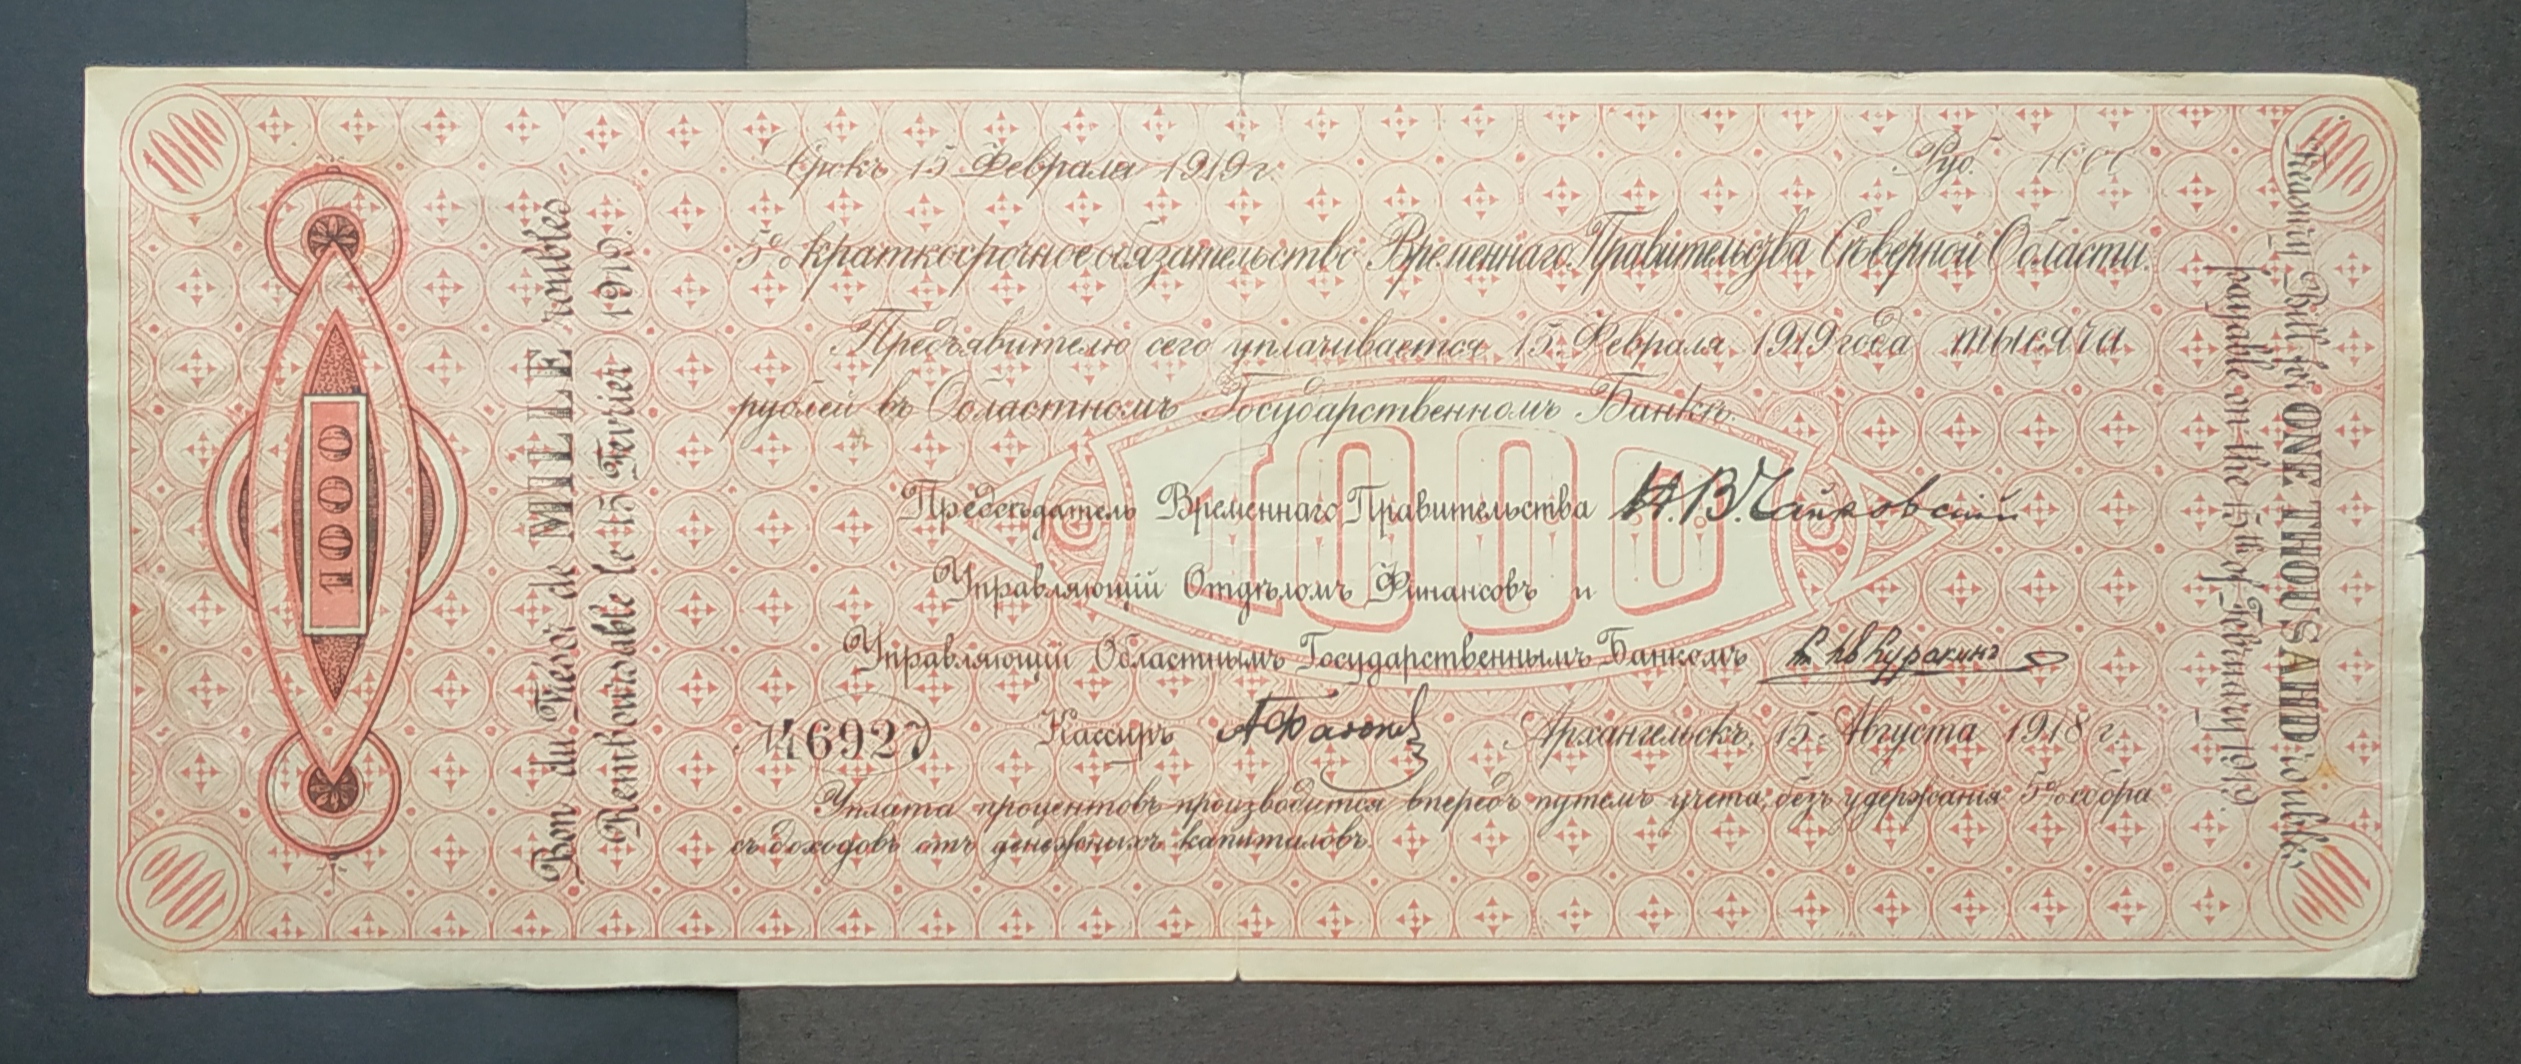 Срокъ 15 Февраля 1919 г.
Руб. 1000
5% краткосрочное обязательство Временнаго Правительства Сѣверной Области.
Предъявителю сего уплачивается 15 Февраля 1919 года тысяча
рублей въ Областномъ Государственномъ Банкѣ.
1000
Предсѣдатель Временнаго Правительства Н.В.Чайковскій
Управляющій Отдѣломъ Финансовъ и
Управляющій Областнымъ Государственнымъ Банкомъ Куракинъ
№ 46927
Кассиръ
Архангельскъ, 15 Августа 1918 г.
Уплата процентовъ производится впередъ путемъ учета, безъ удержанія 5% сбора
съ доходовъ отъ денежныхъ капиталовъ.
1000
Bon du Trésor de MILLE roubles
Remboursable le 15 Fevrier 1919.
Treasury Bill for ONE THOUSAND roubles
payable on the 15th of February 1919.
1000
1000
1000
1000